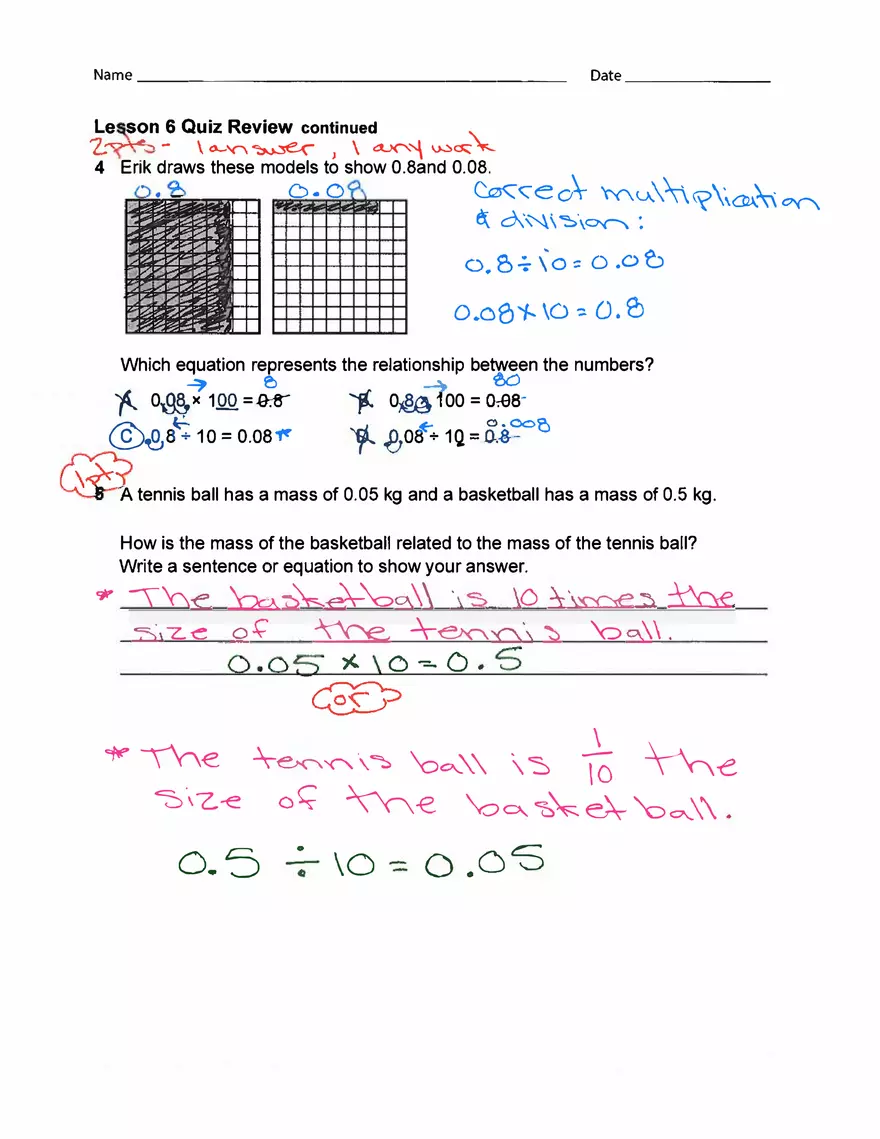 Name Date
Lesson 6 Quiz Review continued
2pts - 1 answer, 1 any work
4 Erik draws these models to show 0.8and 0.08.
0.8 0.08
Correct multiplication
& division:
0.8 ÷ 10 = 0.08
0.08 × 10 = 0.8
Which equation represents the relationship between the numbers?
8 80
A 0.08 × 100 = 0.8 B 0.8 × 100 = 0.08
0.008
C 0.8 ÷ 10 = 0.08 * D 0.08 ÷ 10 = 0.8
1pt
5 A tennis ball has a mass of 0.05 kg and a basketball has a mass of 0.5 kg.
How is the mass of the basketball related to the mass of the tennis ball?
Write a sentence or equation to show your answer.
* The basketball is 10 times the
size of the tennis ball.
0.05 × 10 = 0.5
or
* The tennis ball is 1/10 the
size of the basketball.
0.5 ÷ 10 = 0.05